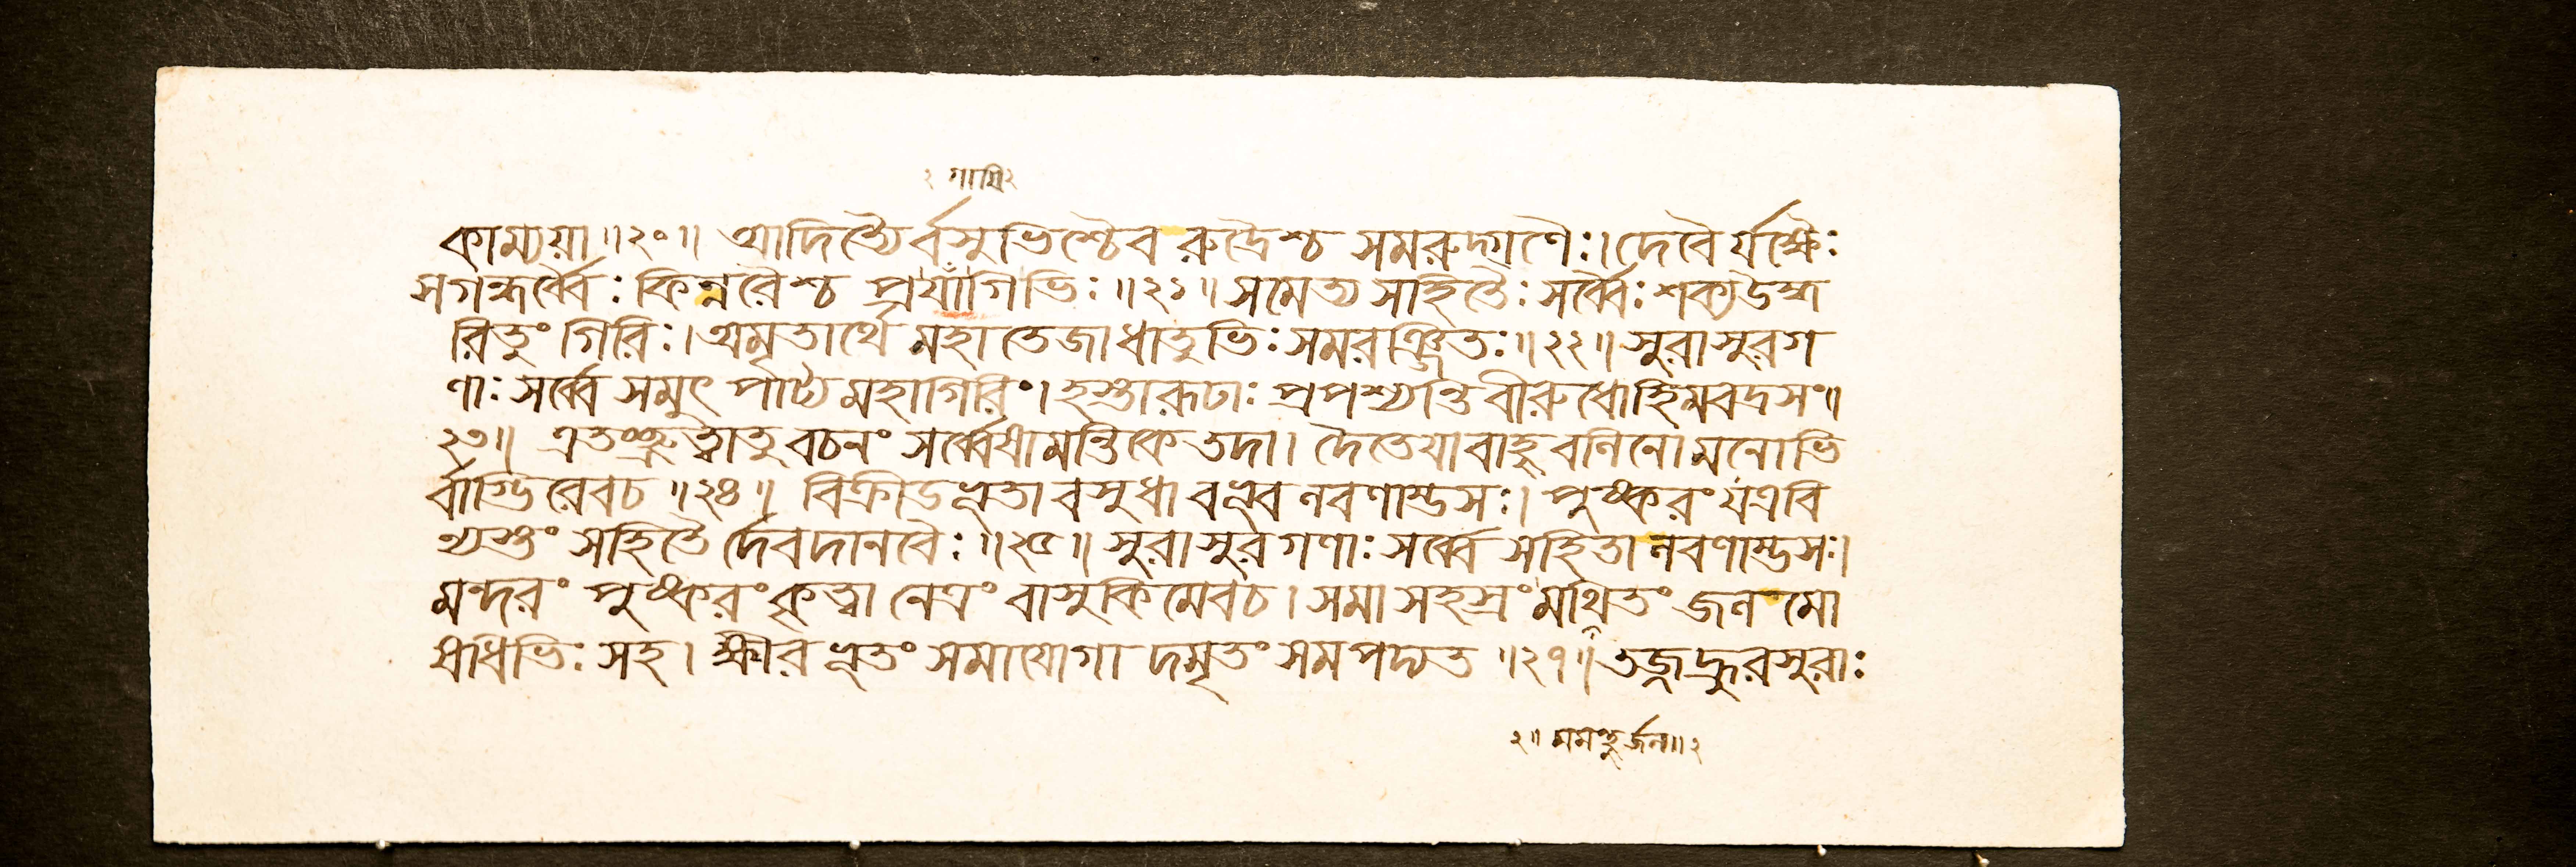 ২ গামি২
কাম্যয়া॥২০॥ আদিত্যৈর্বসুভিশ্চৈব রুদ্রৈশ্চ সমরুদ্গণৈঃ।দেবৈর্যক্ষৈঃ
সগন্ধর্ব্বৈঃ কিন্নরৈশ্চ প্রযাঁগিভিঃ॥২১॥সমেত্য সহিতৈঃ সর্ব্বৈঃ শক্যউদ্ধ
রিতুং গিরিঃ।অমৃতার্থে মহাতেজাধাতুভিঃ সমরঞ্জিতঃ॥২২॥সুরাসুরগ
ণাঃ সর্ব্বে সমুৎপাট্যমহাগিরিং। হস্তারূঢাঃ প্রপশ্যন্তি বীরুধোহিমবদ্রসং॥
২৩॥ এতচ্ছ্রুত্বাতু বচনং সর্ব্বেএামন্তিকে তদা। দৈতেযাবাহু বলিনো মনোভি
র্বাগ্ভিরেবচ॥২৪॥ বিক্রীডল্পতা বসুধা বল্পব লবণাম্ভসঃ। পুষ্করং যত্রবি
থ্যস্তং সহিতৈর্দেবদানবৈঃ॥২৫॥সুরাসুরগণাঃ সর্ব্বে সহিতা লবণাম্ভসঃ।
মন্দরং পুষ্করং কৃত্বা নেত্রং বাসুকিমেবচ। সমা সহস্রং মথিতং জল মো
ষধিভিঃ সহ। ক্ষীরল্পতং সমাযোগাদমৃতং সমপদ্যত॥২৭॥তজ্জহ্রুরসুরাঃ
২॥ মমন্থুর্জল॥২